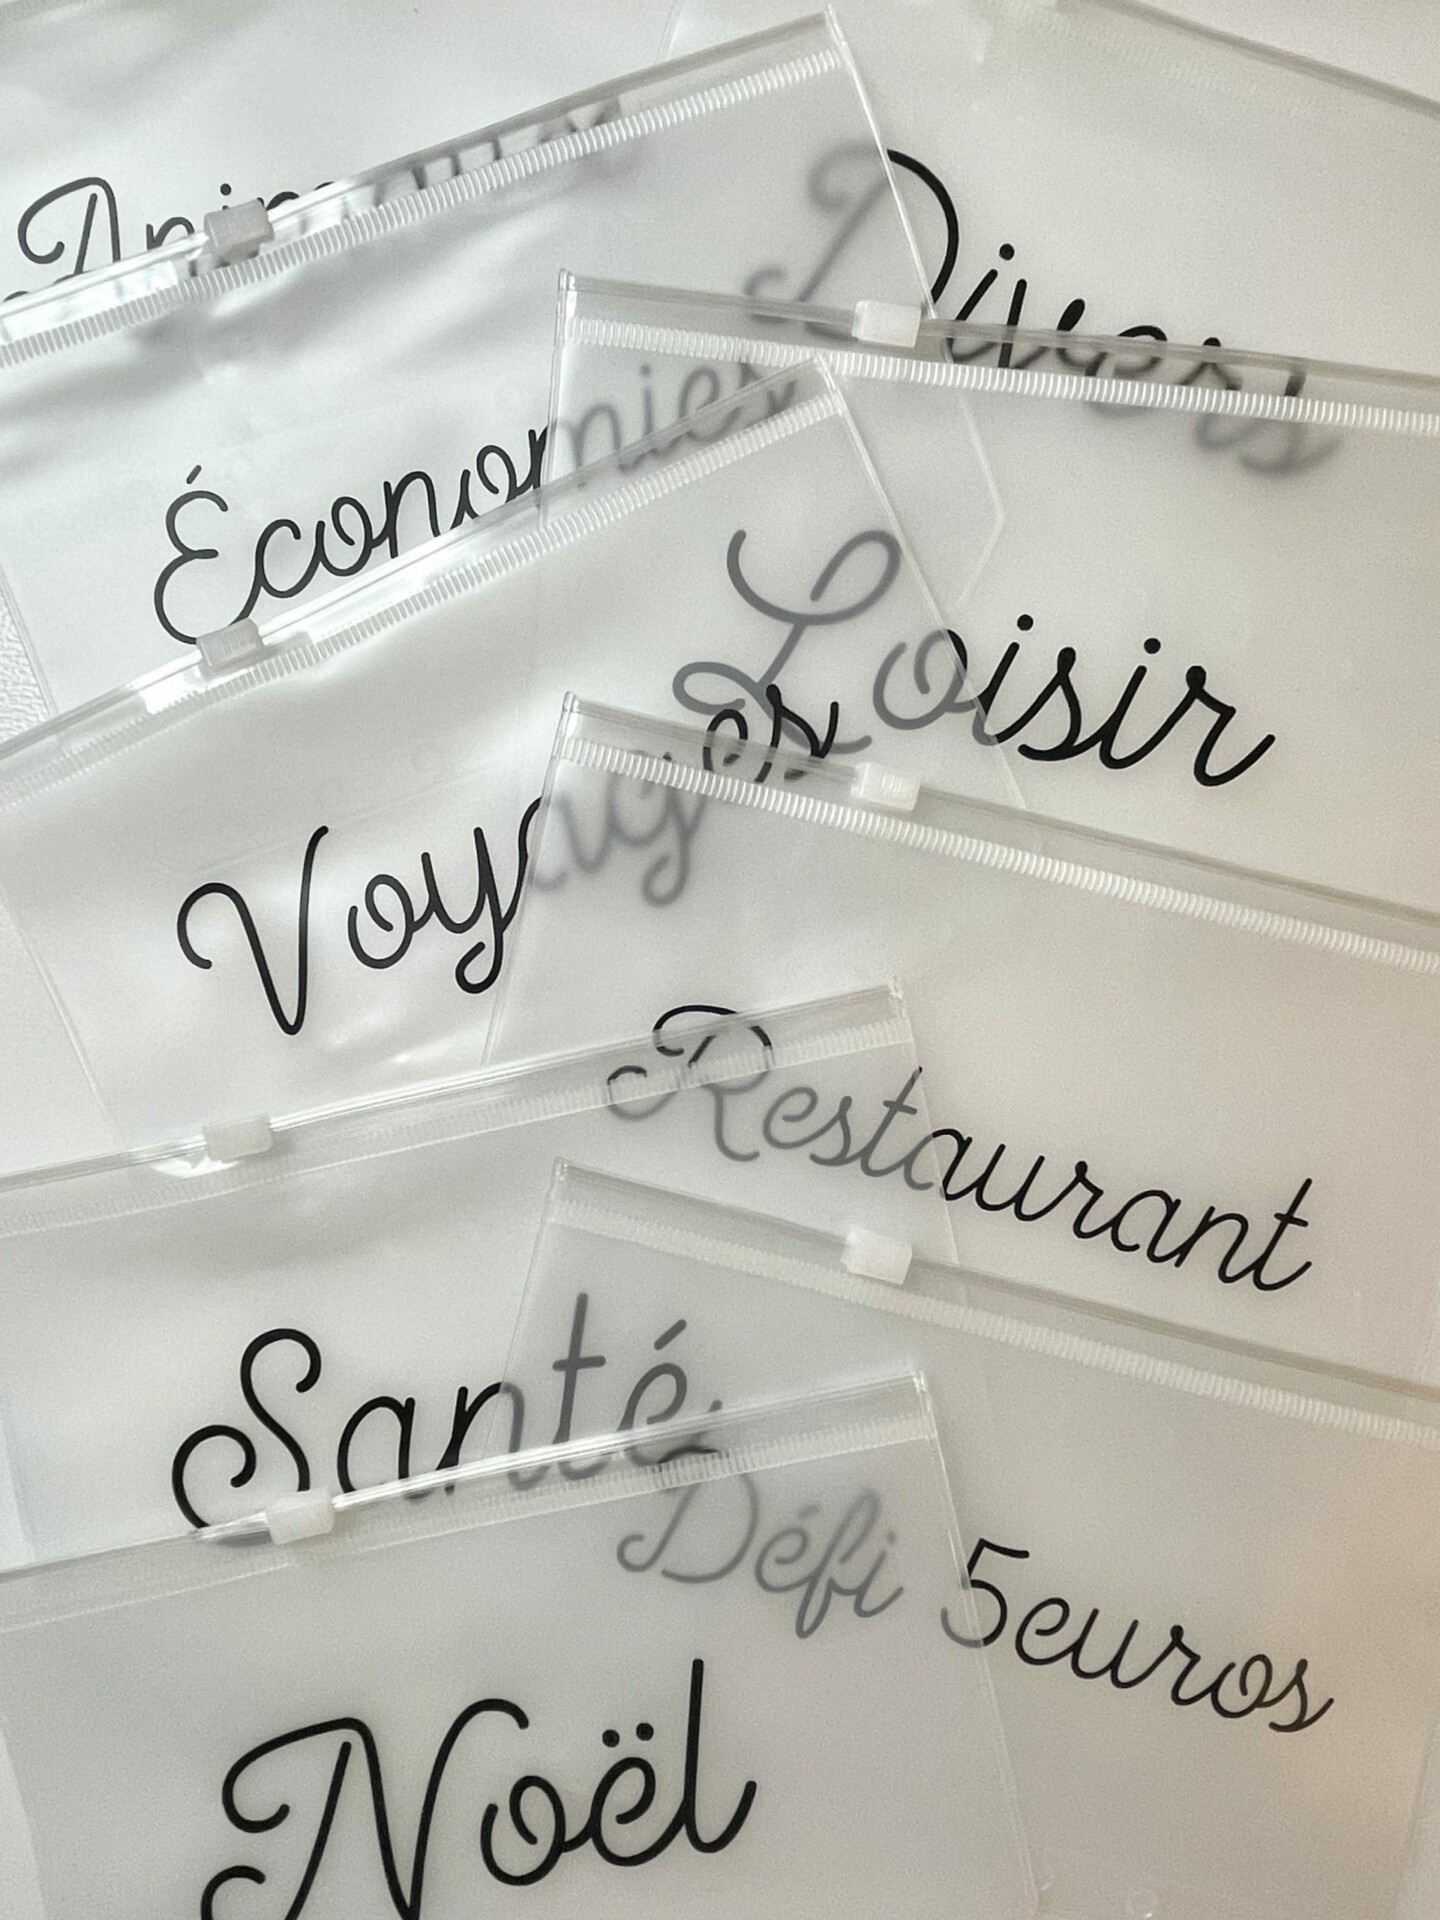 Animaux
Divers
Économies
Loisir
Voyages
Restaurant
Santé
Défi 5euros
Noël